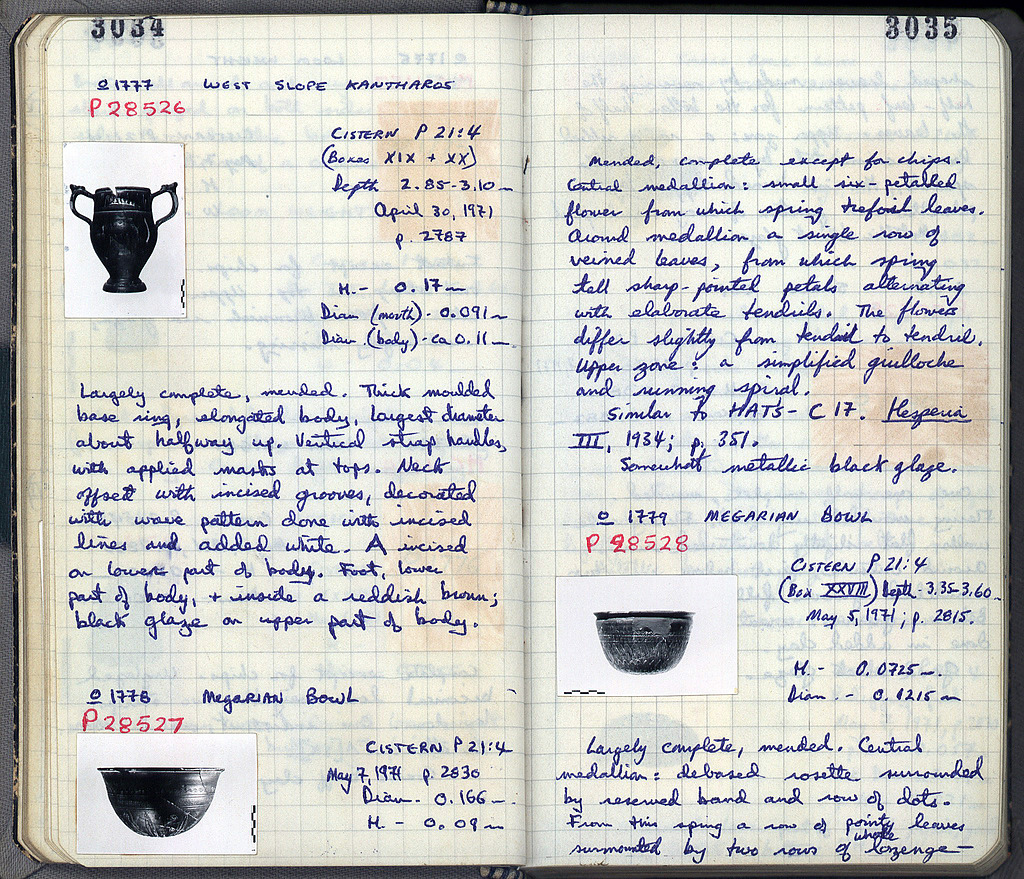 3034
O 1777 WEST SLOPE KANTHAROS
P 28526
CISTERN P 21:4
(Boxes XIX + XX)
Depth 2.85-3.10 m
April 30, 1971
p. 2787
H. - 0.17 m
Diam (mouth) - 0.091 m
Diam. (body) - ca 0.11 m
Largely complete, mended. Thick moulded
base ring, elongated body, largest diameter
about halfway up. Vertical strap handles,
with applied masks at tops. Neck
offset with incised grooves, decorated
with wave pattern done with incised
lines and added white. A incised
on lower part of body. Foot, lower
part of body, + inside a reddish brown;
black glaze on upper part of body.
O 1778 MEGARIAN BOWL
P 28527
CISTERN P 21:4
May 7, 1971 p. 2830
Diam. - 0.166 m
H. - 0.09 m
3035
Mended, complete except for chips.
Central medallion: small six-petalled
flower from which spring trefoil leaves.
Around medallion a single row of
veined leaves, from which spring
tall sharp-pointed petals alternating
with elaborate tendrils. The flowers
differ slightly from tendril to tendril.
Upper zone: a simplified guilloche
and running spiral.
Similar to HATS- C 17. Hesperia
III, 1934; p. 351.
Somewhat metallic black glaze.
O 1779 MEGARIAN BOWL
P 28528
CISTERN P 21:4
(Box XXVIII) Depth - 3.35-3.60 m
May 5, 1971; p. 2815.
H. - 0.0725 m.
Diam. - 0.1215 m
Largely complete, mended. Central
medallion: debased rosette surrounded
by reserved band and row of dots.
From this spring a row of pointy leaves
whole
surmounted by two rows of lozenge-